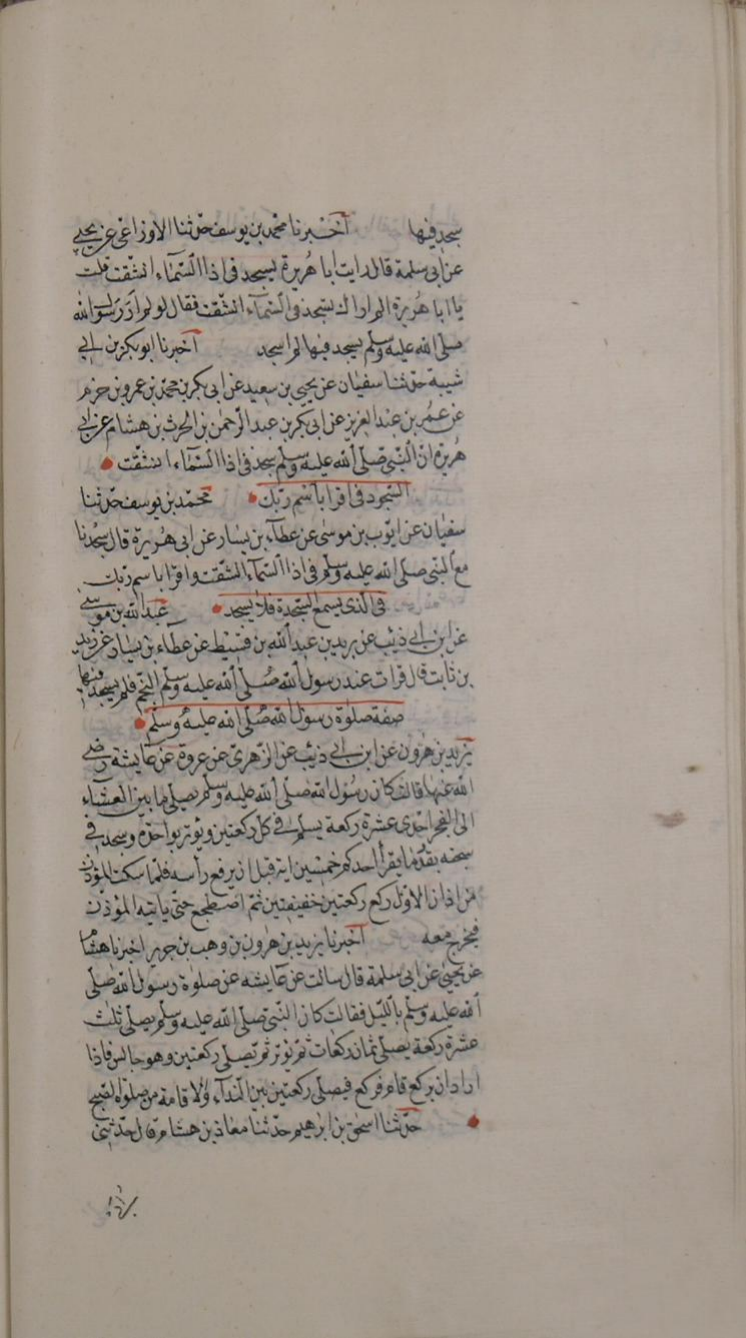 سجد فيها أخبرنا محمد بن يوسف حدثنا الاوزاعى عن يحيى
عن ابى سلمة قال رايت ابا هريرة يسجد فى اذا السمآء انشقت قلت
يا ابا هريرة الم اراك تسجد فى السمآء انشقت فقال لو لم ار رسول الله
صلى الله عليه وسلم يسجد فيها لم اسجد أخبرنا ابو بكر بن ابى
شيبة حدثنا سفيان عن يحيى بن سعيد عن ابى بكر بن محمد بن عمرو بن حزم
عن عمر بن عبد العزيز عن ابى بكر بن عبد الرحمن بن الحرث بن هشام عن ابى
هريرة ان النبى صلى الله عليه وسلم سجد فى اذا السمآء انشقت
السجود فى اقرا باسم ربك محمد بن يوسف حدثنا
سفيان عن ايوب بن موسى عن عطآء بن يسار عن ابى هريرة قال سجدنا
مع النبى صلى الله عليه وسلم فى اذا السمآء انشقت واقرا باسم ربك
فى الذى يسمع السجدة فلا يسجد عبد الله بن موسى
عن ابن ابى ذيب عن يزيد بن عبد الله بن قسيط عن عطاء بن يسار عن زيد
بن ثابت قال قرات عند رسول الله صلى الله عليه وسلم النجم فلم يسجد فيها
صفة صلوة رسول الله صلى الله عليه وسلم
يزيد بن هرون عن ابن ابى ذيب عن الزهرى عن عروة عن عايشة رضى
الله عنها قالت كان رسول الله صلى الله عليه وسلم يصلى ما بين العشآء
الى الفجر احدى عشرة ركعة يسلم فى كل ركعتين ويوتر بواحدة ويسجد فى
سبحته بقدر ما يقرأ احدكم خمسين اية قبل ان يرفع رأسه فلما سكت المؤذن
من اذان الاول ركع ركعتين خفيفتين ثم اضطجع حتى ياتيه المؤذن
فيخرج معه أخبرنا يزيد بن هرون بن وهب بن جرير اخبرنا هشام
عن يحيى عن ابى سلمة قال سالت عن عايشه عن صلوة رسول الله صلى
الله عليه وسلم بالليل فقالت كان النبى صلى الله عليه وسلم يصلى ثلث
عشرة ركعة يصلى ثمان ركعات ثم يوتر ثم يصلى ركعتين وهو جالس فاذا
اراد ان يركع قام فركع فيصلى ركعتين بين الندآء والاقامة من صلوة الصبح
حدثنا اسحق بن ابرهيم حدثنا معاذ بن هشام قال حدثنى